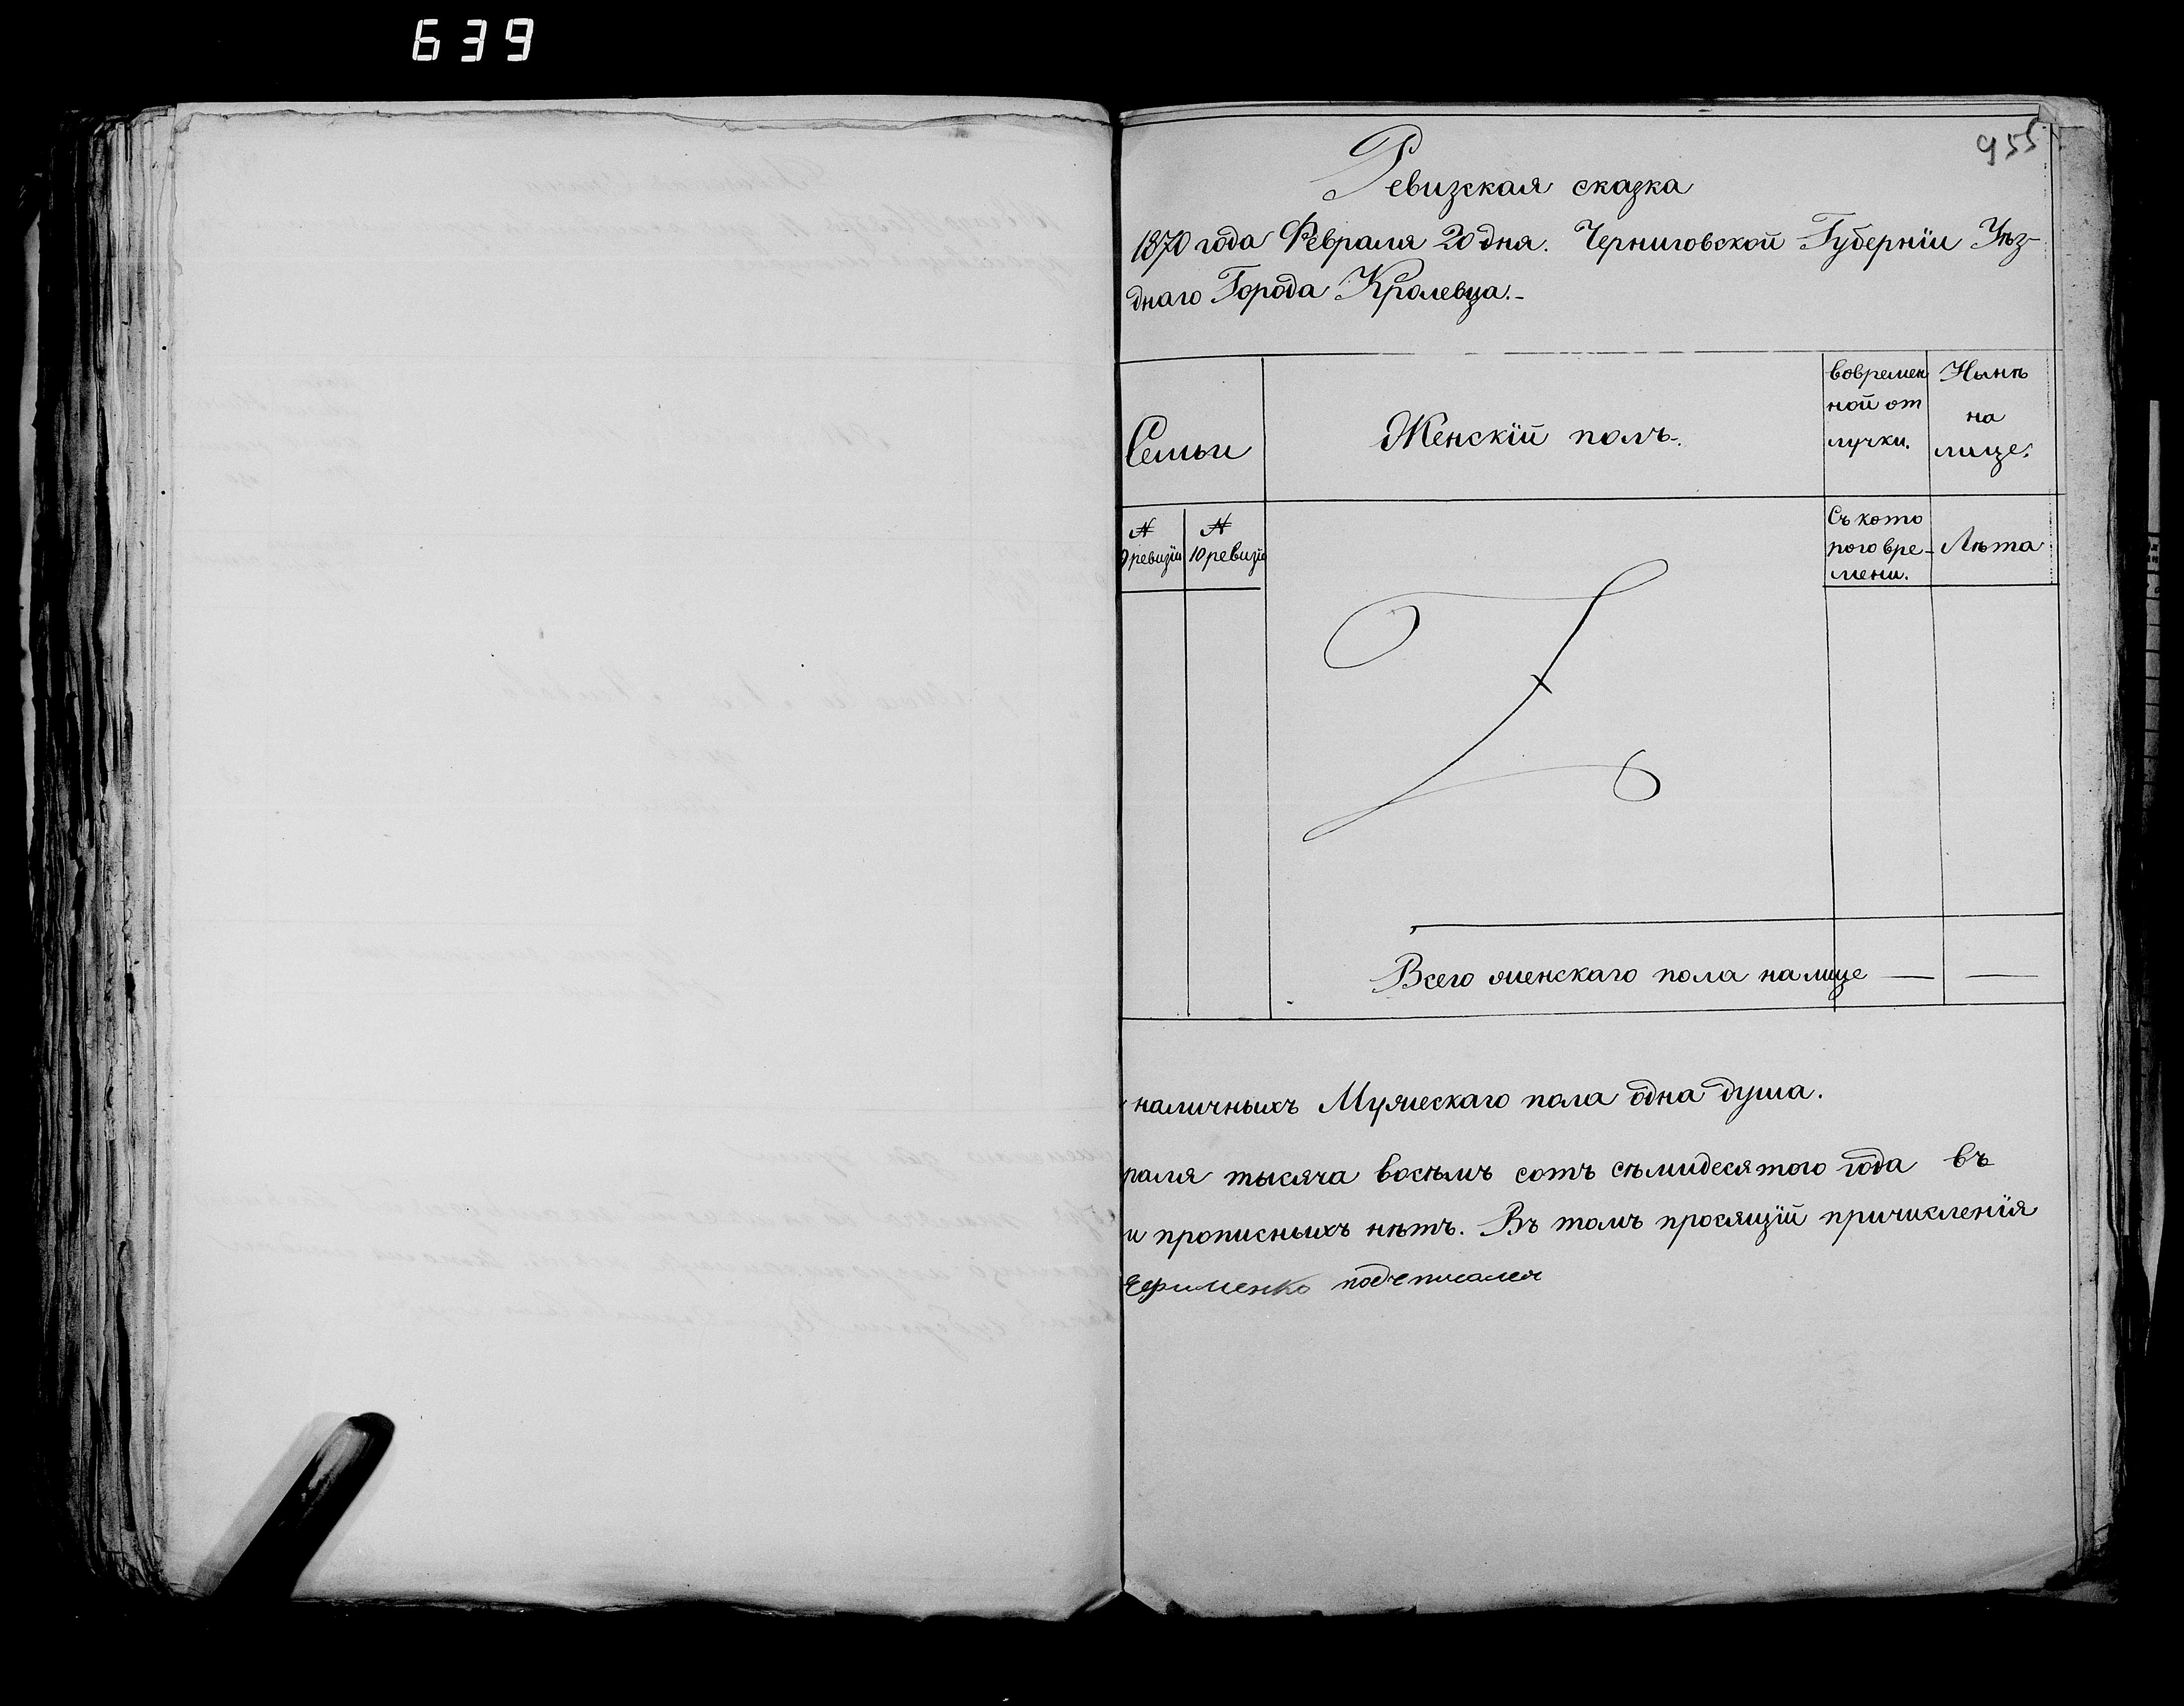 639
955
Ревизская сказка
1870 года Февраля 20 дня. Черниговской Губернїи Уѣз-
днаго Города Кролевца.-
Семьи
Женскїй полъ.
вовремен
ной от
лучки.
Нынѣ
на
лице.
№
9 ревизіи
№
10 ревизіи
Съ кото
рого вре-
мени.
Лѣта
Всего женскаго пола на лице — —
наличныхъ Мужескаго пола одна душа.
раля тысяча восѣмъ сотъ сѣмидесятого года въ
и прописныхъ нѣтъ. Въ томъ просящїй причисленїя
Ефименко подписался